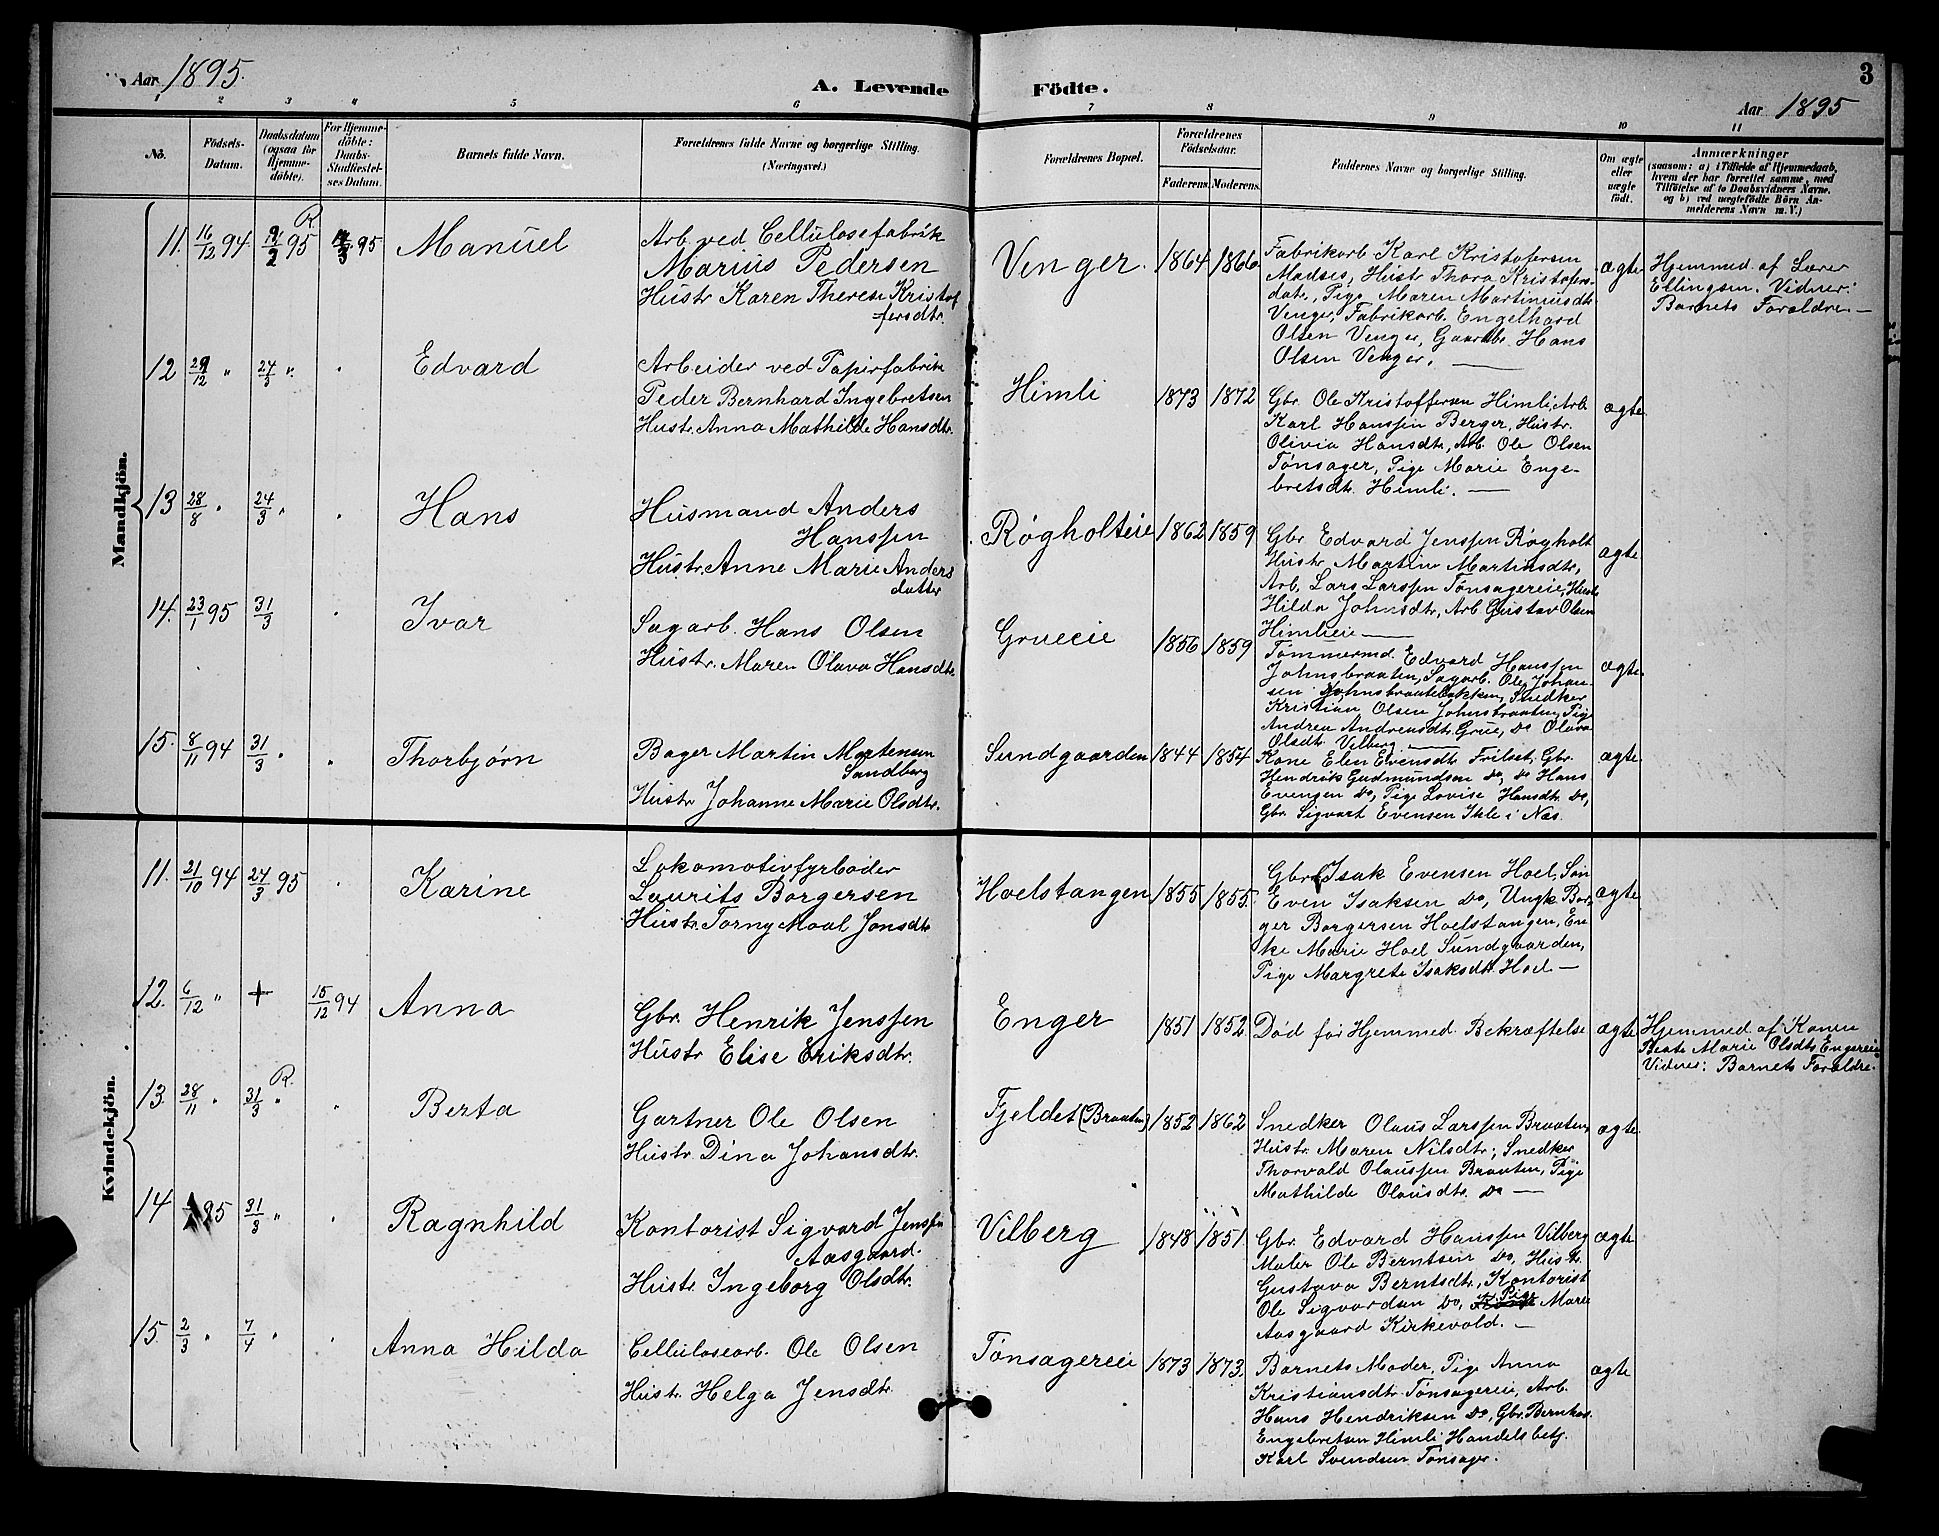 Aar 1895.
A. Levende Födte.
3
Aar 1895
1 2 3 4 5 6 7 8 9 10 11
No.
Födsels-Datum.
Daabsdatum (ogsaa for Hjemme-döbte).
For Hjemme-döbte: Daabs-Stadfæstel-ses Datum.
Barnets fulde Navn.
Forældrenes fulde Navne og borgerlige Stilling. (Næringsvei.)
Forældrenes Bopæl.
Forældrenes Födselsaar.
Faderens. Moderens.
Faddernes Navne og borgerlige Stilling.
Om ægte eller uægte födt.
Anmærkninger
(saasom: a) i Tilfælde af Hjemmedaab,
hvem der har forrettet samme, med
Tilföielse af to Daabsvidners Navne,
og b) ved uægtefödte Börn An-
melderens Navn m. V.)
Mandkjön.
11. 16/12 94. /2 95 R. /3 95 Manuel
Arb. ved Cellulosefabrik
Marius Pedersen
Hustr. Karen Therese Kristof
fersdtr.
Venger. 1864 1866
Fabrikarb. Karl Kristofersen
Madses, Hustr. Thora Kristofers-
datr, Pige Maren Martiniusdtr.
Venger, Fabrikarb. Engelhard
Olsen Venger, Gaardbr. Hans
Olsen Venger.
ægte
Hjemmed. af Lærer
Ellingsen. Vidner:
Barnets Forældre. —
12 29/12 " 24/3 " Edvard
Arbeider ved Papirfabrik
Peder Bernhard Ingebretsen
Hustr. Anna Mathilde Hansdtr.
Himli 1873 1872
Gbr. Ole Kristoffersen Himli, Arb.
Karl Hanssen Berger, Hustr.
Olivia Hansdtr, Arb. Ole Olsen
Tønsager, Pige Marie Enge-
bretsdtr. Himli. —
ægte
13 28/8 " 24/3 " Hans
Husmand Anders
Hanssen
Hustr. Anne Marie Anders
datter
Røgholteie 1862 1859
Gbr. Edvard Jenssen Røgholt
Hustr. Martine Martinsdtr,
Arb. Lars Larssen Tønsagereie, Hustr.
Hilda Johnsdtr, Arb. Gustav Olsen
Himlieie —
ægte
14. 23/1 95 31/3 Ivar
Sagarb. Hans Olsen
Hustr. Maren Olava Hansdtr.
Grueeie 1856 1859
Tømmermd. Edvard Hanssen
Johnsbraaten, Sagarb. Ole Johan-
sen Johnsbraatebakken, Snedker
Kristian Olsen Johnsbraaten, Pige
Andrea Andreasdtr. Grue, do Olava
Olsdtr. Vilberg. —
ægte.
15. 8/11 94 31/3 " Thorbjørn
Bager Martin Mortensen
Sandberg
Hustr. Johanne Marie Olsdtr.
Sundgaarden 1844 1854
Kone Elen Evensdtr. Frilset, Gbr.
Hendrik Gudmundsen do, do Hans
Evensen do, Pige Lovise Hansdtr. do,
Gbr. Sigvart Evensen Ihle i Næs.
ægte
Kvindekjön.
11. 21/10 94 24/3 95 Karine
Lokomotivfyrbøder
Laurits Borgersen
Hustr. Torny Moal Jonsdtr.
Hoelstangen 1855 1855.
Gbr. Isak Evensen Hoel, Søn
Even Isaksen do, Ungk. Bor-
ger Borgersen Hoelstangen, En-
ke Marie Hoel Sundgaarden,
Pige Margrete Isaksdtr. Hoel —
ægte
12. 6/12 " + 15/12 94 Anna
Gbr. Henrik Jenssen
Hustr Elise Eriksdtr.
Enger 1851 1852
Død før Hjemmed. Bekræftelse
ægte
Hjemmed. af Konen
Beate Marie Olsdtr. Engereie
Vidner: Barnets Forældre.
13. 28/11 " 31/3 " R. Berta
Gartner Ole Olsen
Hustr. Dina Johansdtr.
Fjeldet (Braaten) 1852 1862
Snedker Olaus Larssen Braaten,
Hustr. Maren Nilsdtr; Snedker
Thorvald Olaussen Braaten, Pige
Mathilde Olausdtr. do —
ægte.
14 95 31/3 " Ragnhild
Kontorist Sigvard Jenssen
Aasgaard.
Hustr. Ingeborg Olsdtr.
Vilberg 1848 1851
Gbr. Edvard Hanssen Vilberg
Maler Ole Berntsen do, Hustr.
Gustava Berntsdtr., Kontorist
Ole Sigvardsen do, Pige Marie
Aasgaard Kirkevold. —
ægte
15. 2/3 " 7/4 " Anna Hilda
Cellulosearb. Ole Olsen
Hustr. Helga Jensdtr.
Tønsagereie 1873 1873.
Barnets Moder, Pige Anna
Kristiansdtr. Tønsagereie, Arb.
Hans Hendriksen do, Gbr. Bernhard
Engebretsen Himli Handelsbetj.
Karl Svendsen Tønsager.
ægte